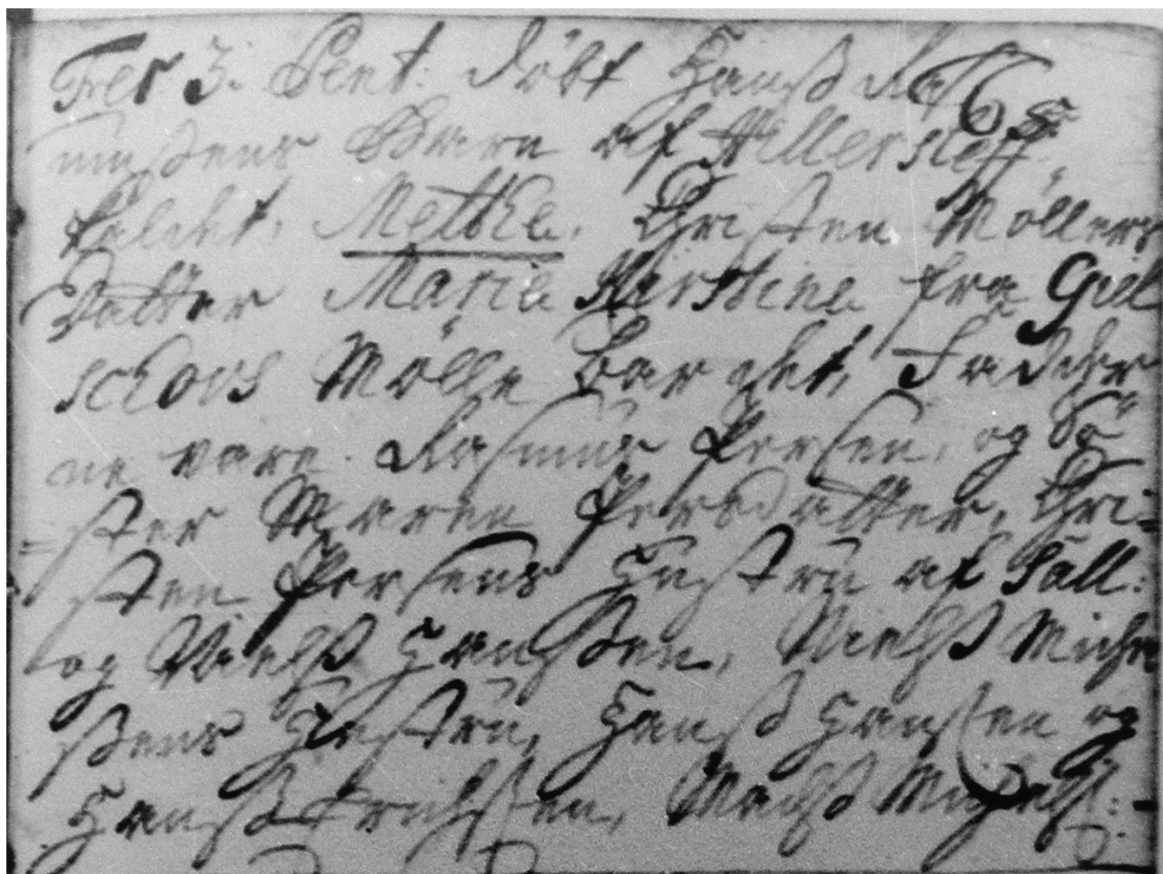 Fer 3. Pent: döbt Hanß Raß
mußens Barn af Hillerslef
kaldet, Mettke. Christen Möllers
Datter Marie Kirstine fra Giel
schous Mölle bar det, Faddr
ne vare. Rasmus Persen, og Sö
=ster Maren Persdatter, Chri=
sten Persens Hustru af Fåll:
og Nielß Hanßen, Nielß Michel
ßens Hustru, Hanß Hansen og
Hanß Erichßen, Madß